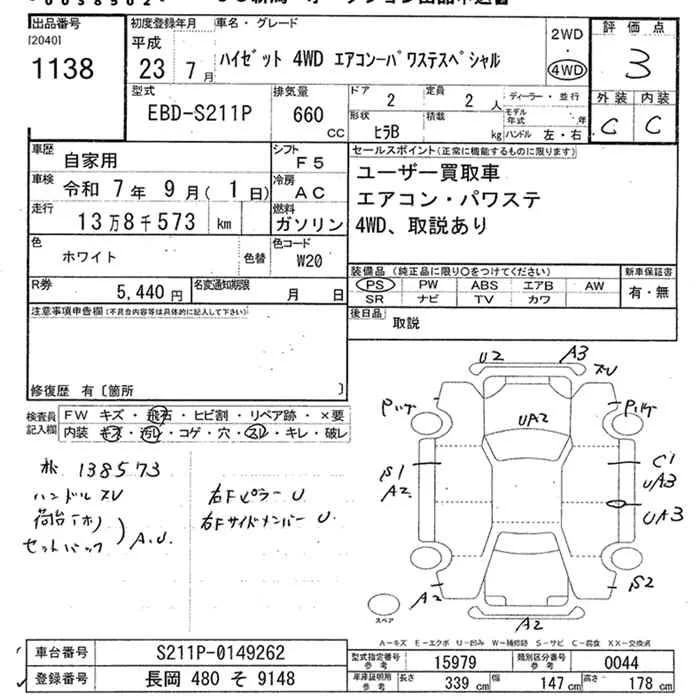 出品番号
[2040]
1138
初度登録年月
平成
23 7月
車名・グレード
ハイゼット 4WD エアコンーパワステスペシャル
2WD
・
4WD
評価点
3
外装 内装
C C
型式
EBD-S211P
排気量
660
CC
ドア
2
定員
2 人
ディーラー・並行
形状
ヒラB
積載
kg
モデル年式 年
ハンドル 左・右
車歴
自家用
シフト
F5
車検
令和 7年 9月( 1日)
冷房
AC
走行
13万8千573 km
燃料
ガソリン
色
ホワイト
色替
色コード
W20
R券
5,440 円
名変通知期限
月 日
セールスポイント(正常に機能するものに限ります)
ユーザー買取車
エアコン・パワステ
4WD、取説あり
装備品 (純正品に限り○をつけてください)
PS PW ABS エアB AW
SR ナビ TV カワ
新車保証書
有・無
後日品
取説
注意事項申告欄(不具合内容等は具体的に記入して下さい)
修復歴 有〔箇所 〕
検査員記入欄
FW キズ・飛石・ヒビ割・リペア跡・×要
内装 キズ・汚レ・コゲ・穴・スレ・キレ・破レ
138573
ハンドル スレ
荷台
セットバック
A.U
右Fピラー U
右Fサイドメンバー U.
U2
A3
スレ
UA2
S1
A2
C1
UA3
UA3
A2
S2
A2
スペア
A−キズ E−エクボ U−凹み W−補修跡 S−サビ C−腐食 XX−交換済
車台番号
S211P-0149262
登録番号
長岡 480 そ 9148
型式指定番号
参考
15979
類別区分番号
参考
0044
車庫証明用
参考
長さ
339 cm
幅
147 cm
高さ
178 cm